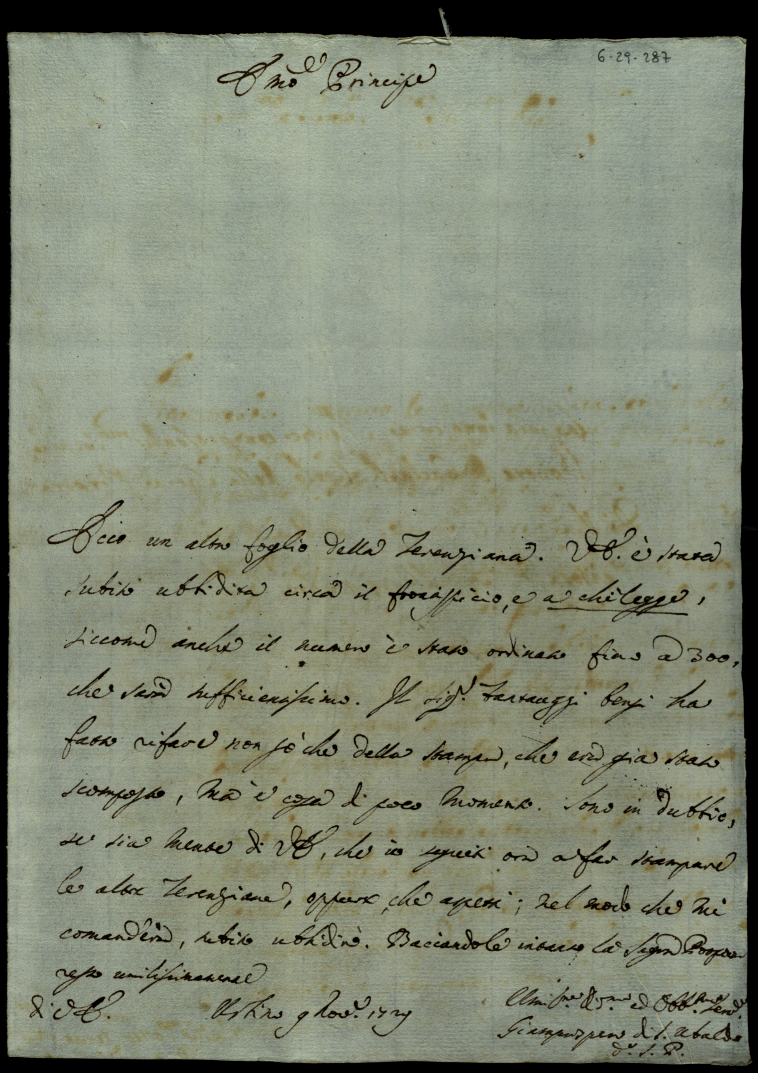 6-29-287
Emo Principe
Ecco un altro foglio della Terenziana. VE. è stata
subito ubbidita circa il frontispicio, e a chi legge,
siccome anche il numero è stato ordinato fino a 300,
che sarà sufficientissimo. Il Sigr. bensì ha
fatto rifare non sò che della stampa, che era già stato
scomposto, mà è cosa di poco momento. Sono in dubbio,
se sia mente di VE, che io seguiti ora a far stampare
le altre Terenziane, oppure che aspetti; nel modo che mi
comanderà, subito ubbidirò. Baciandole intanto la Sagra Porpora
resto umilissimamente
di VE. Urbino 9 Nov. 1729
Umo Dmo ed Obbmo Serv.
Giampospero di S. Ubaldo
d. S. P.